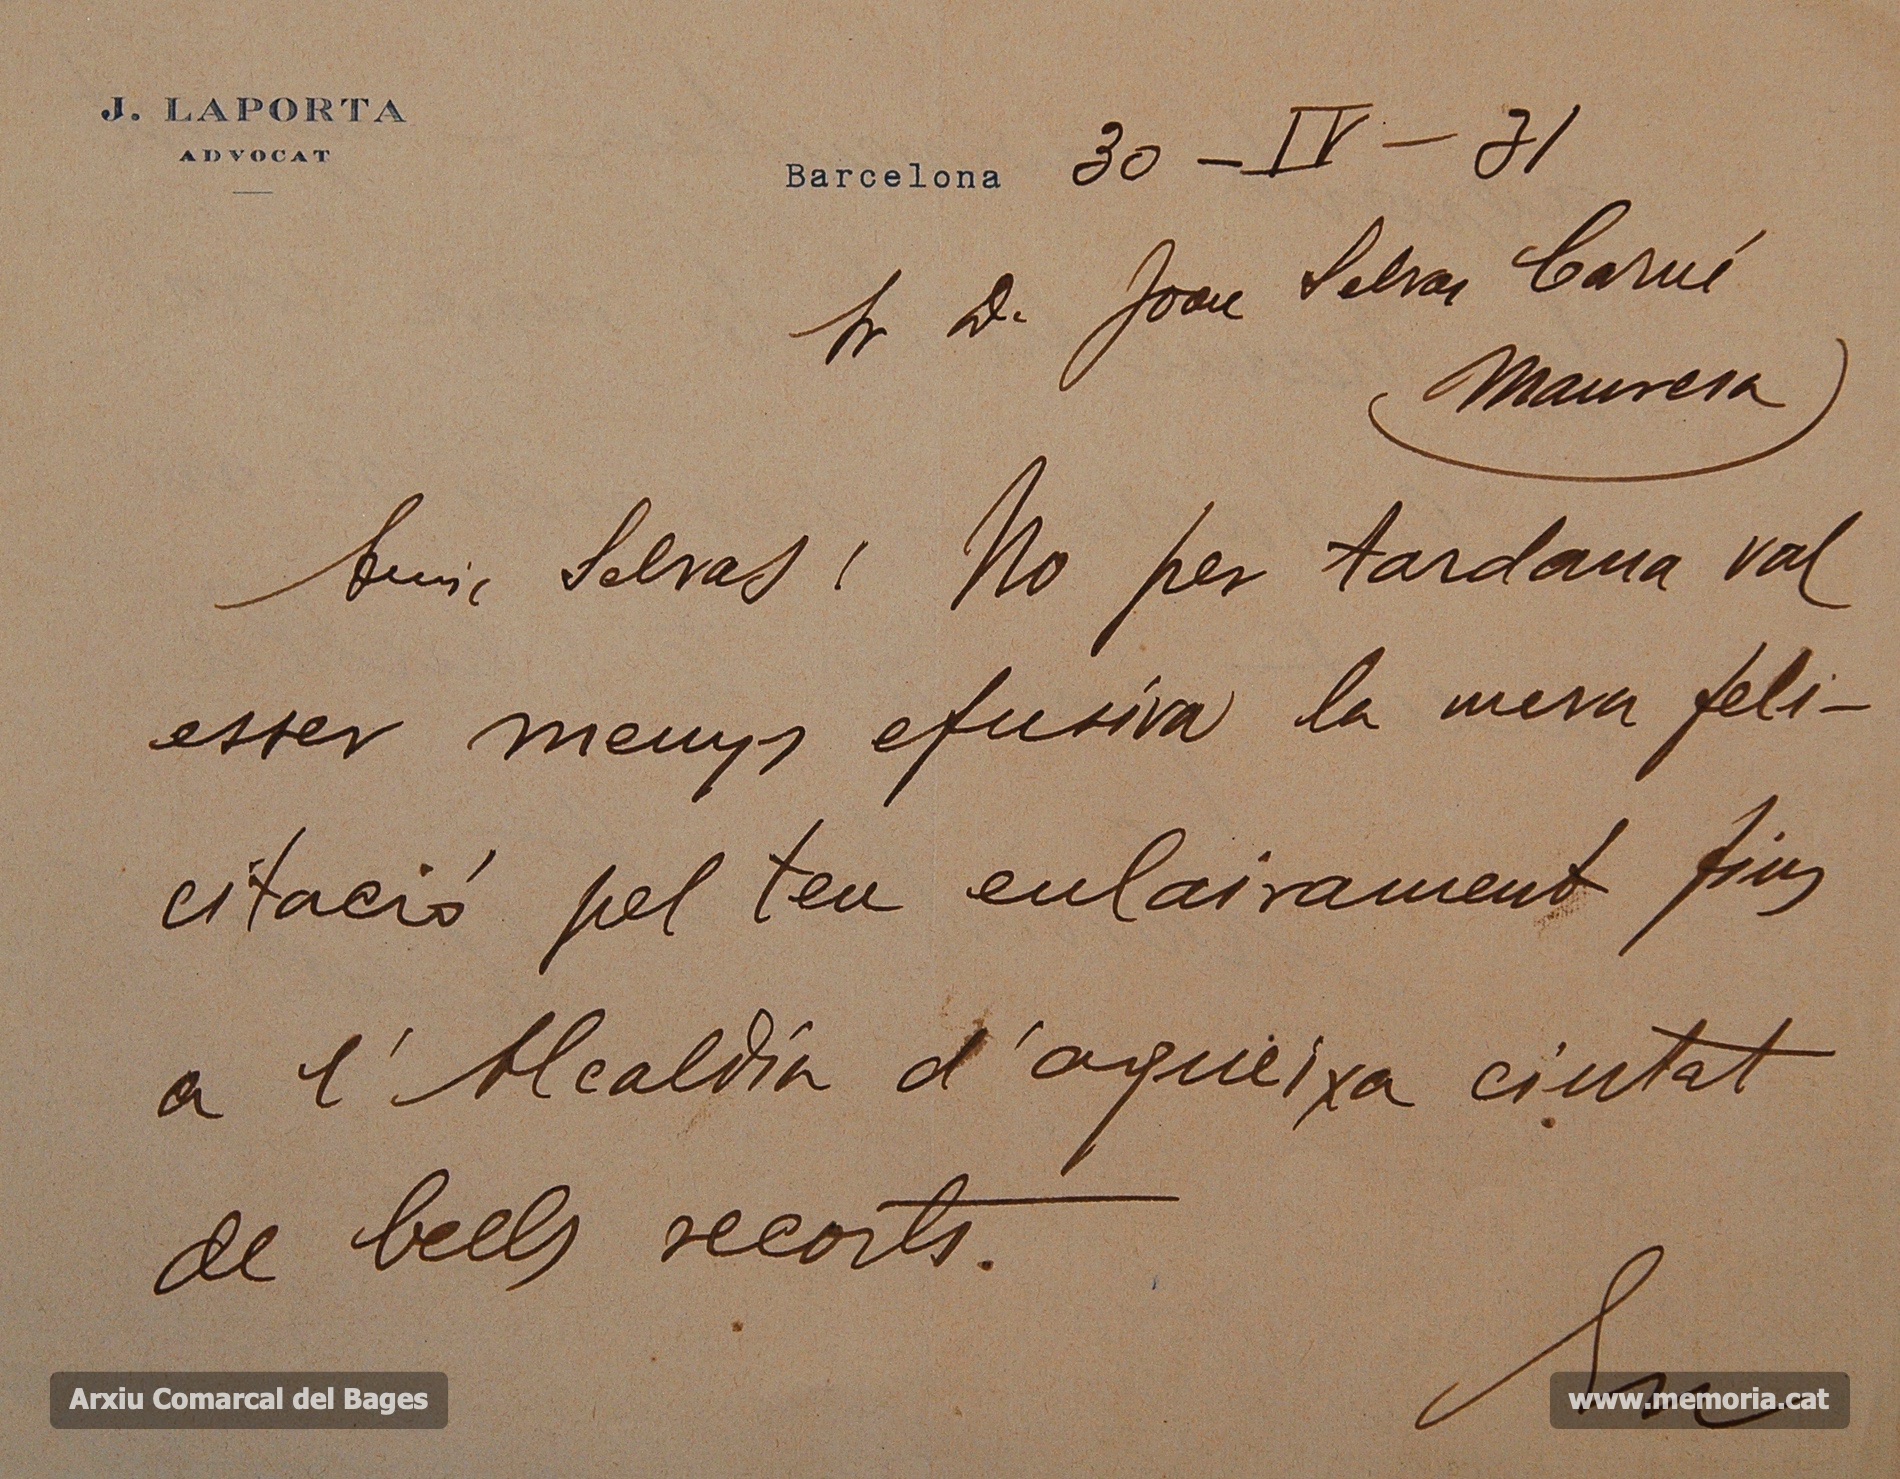 J. LAPORTA
ADVOCAT
Barcelona 30 - IV - 31
Sr D. Joan Selvas Carné
Manresa
Amic Selvas: No per tardana val
esser menys efusiva la meva feli-
citació pel teu enlairament fins
a l'Alcaldía d'aqueixa ciutat
de bells recorts.
Arxiu Comarcal del Bages
www.memoria.cat